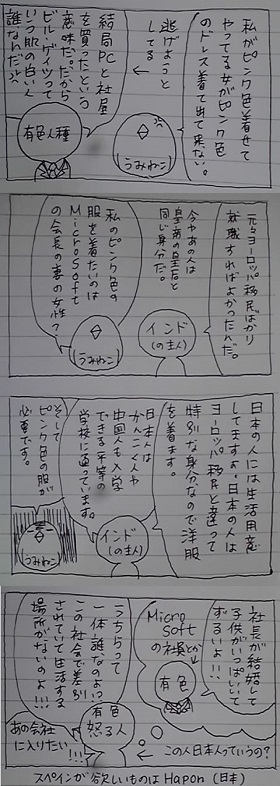 私がピンク色着せて
やってる女がピンク色
のドレス着て出て来ない。
逃げようと
してる
←
うみねこ
結局PCと社屋
を買ったという
意味だ。だから
ビル・ゲイツって
いつ服の白い人
誰なんだ!!
有色人種
元々ヨーロッパ移民ばかり
就職すればよかったんだ。
今やあの人は
皇帝の皇后と
同じ身分だ。
インド
(の主人)
私のピンク色の
服を着たいのは
MicroSoft
の会長の妻の女性？
うみねこ
日本の人には生活用意
してますよ。日本の人は
ヨーロッパ移民と違って
特別な身分なので洋服
を着ます。
インド
(の主人)
日本人は
かんこく人や
中国人も入学
できる平等の
学校に通っています。
そして
ピンク色の服が
必要です。
うみねこ
社長が結婚して
子供がいっぱいいて
ずるいよ!!
Micro
Soft
の社長とか
有色
こっちらって
一体誰なのよ?
この社会で差別
されていて生活する
場所がないのよ!!!
有色
怒る人
あの会社
に入りたい!!!
この人日本人っていうの?
スペインが欲しいものは Hapon (日本)